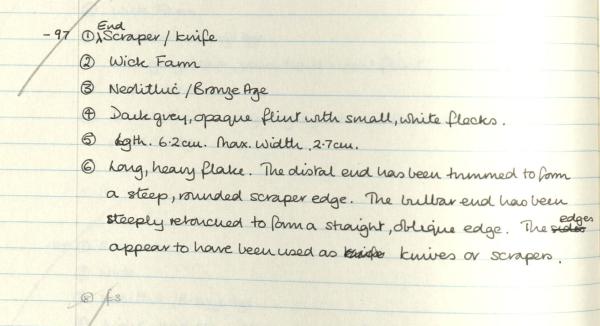 -97 ① End Scraper / knife
② Wick Farm
③ Neolithic / Bronze Age
④ Dark grey, opaque flint with small, white flecks.
⑤ Lgth. 6.2cm. Max. Width. 2.7cm.
⑥ Long, heavy flake. The distal end has been trimmed to form
a steep, rounded scraper edge. The bulbar end has been
steeply retouched to form a straight, oblique edge. The sides edges
appear to have been used as knife knives or scrapers.
⑧ £3